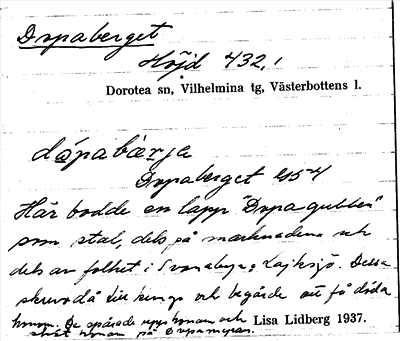 Dopaberget
Höjd 432,1
Dorotea sn, Vilhelmina tg, Västerbottens l.
dópabärja
Dopaberget 454
Här bodde en lapp "Dopagubben"
som stal, dels på marknaderna och
dels av folket i Svanabyn o Lajksjö. Dessa
skrevo då till kungs och begärde att få döda
honom. De spårade upp honom och
sköt honom på Dopamyran.
Lisa Lidberg 1937.